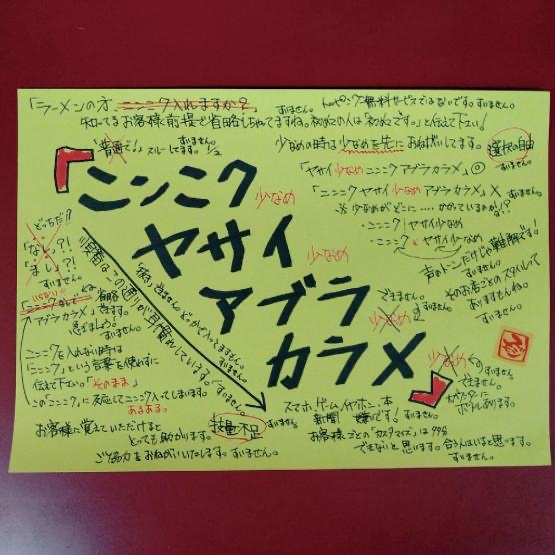 「ラーメンの方、ニンニク入れますか?」
すいません。
トッピング無料サービスではないです。すいません。
知ってるお客様前提で省略しちゃってますね。初めての人は「初めてです。」と伝えて下さい!
「普通で!」スルーしてます。1/2
すいません。
少なめの時は少なめを先におねがいしてます。
選択の自由
すいません。
「ヤサイ少なめニンニクアブラカラメ」◎
「ニンニクヤサイ少なめアブラカラメ」×
すいません。
※少なめがどこに....かかっているのか!?
・ニンニク/ヤサイ少なめ
・ニンニク&ヤサイ少なめ
声のトーンだけじゃ難解です!
すいません。
そのお店ごとのスタイルって
ありますもんね。
すいません。
「ニンニク少なめ
ヤサイ少なめ
アブラ少なめ
カラメ少なめ」
順番はこの通りが耳慣れしています。すいません。
どっちだ!?
「なし」?!
「まし」?!
すいません。
アブラカラメ」できます。
ニンニクを入れない時は
「ニンニク」という言葉を使わずに
伝えて下さい。「そのまま」
この「ニンニク」に反応してニンニク入ってしまいます。
あるある。
お客様に覚えていただけると
とっても助かります。
ご協力をおねがいいたします。すいません。
技量不足
すいません。
できません。
すいません。
できません。
カスターに
ボトルあります。
スマホ、ゲーム、イヤホン、本
新聞 嫌いです!すいません。
お客様ごとの「カスタマイズ」は99%
できないと思います。合う人はいると思います。
すいません。